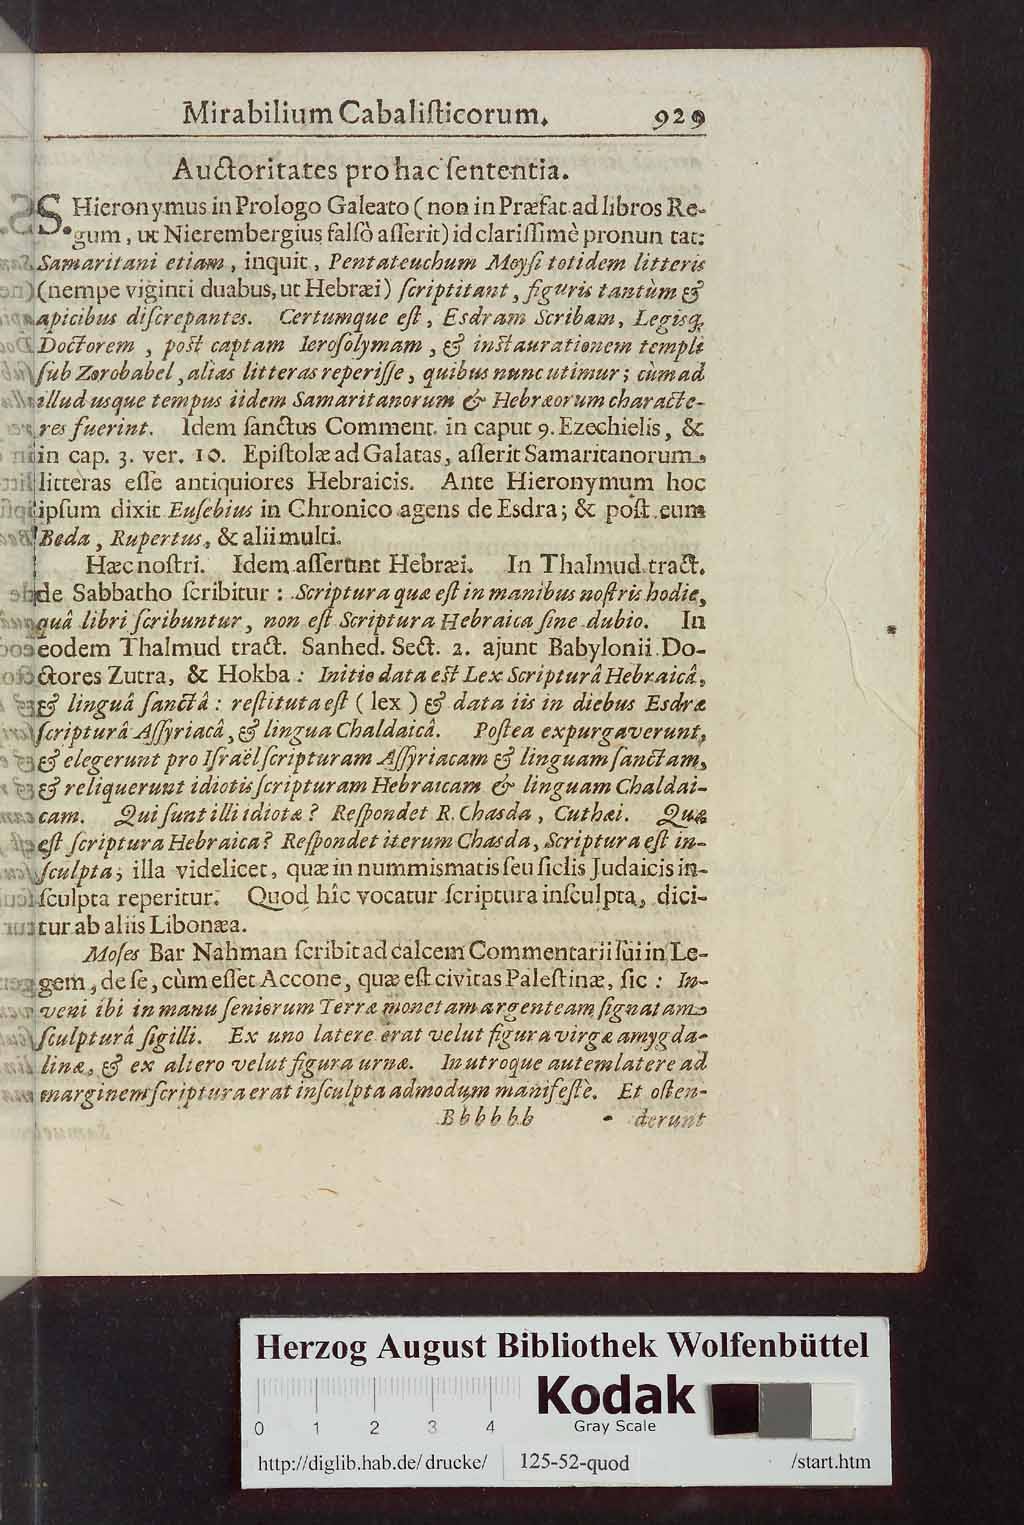 Mirabilium Cabaliſticorum. 929
Auctoritates pro hac ſententia.
S. Hieronymus in Prologo Galeato (non in Præfat. ad libros Re-
gum, ut Nierembergius falſò aſſerit) id clariſſimè pronun tat:
Samaritani etiam, inquit, Pentateuchum Moyſi totidem litteris
(nempe viginti duabus, ut Hebræi) ſcriptitant, figuris tantùm &
apicibus diſcrepantes. Certumque eſt, Esdram Scribam, Legisq;
Doctorem, poſt captam Ieroſolymam, & inſtaurationem templi
ſub Zorobabel, alias litteras reperiſſe, quibus nunc utimur; cùm ad
illud usque tempus iidem Samaritanorum & Hebræorum characte-
res fuerint. Idem ſanctus Comment. in caput 9. Ezechielis, &
in cap. 3. ver. 10. Epiſtolæ ad Galatas, aſſerit Samaritanorum
litteras eſſe antiquiores Hebraicis. Ante Hieronymum hoc
ipſum dixit Euſebius in Chronico agens de Esdra; & poſt eum
Beda, Rupertus, & alii multi.
Hæc noſtri. Idem aſſerunt Hebræi. In Thalmud tract.
de Sabbatho ſcribitur: Scriptura quæ eſt in manibus noſtris hodie,
quâ libri ſcribuntur, non eſt Scriptura Hebraica ſine dubio. In
eodem Thalmud tract. Sanhed. Sect. 2. ajunt Babylonii Do-
ctores Zutra, & Hokba: Initio data eſt Lex Scripturâ Hebraicâ,
& linguâ ſanctâ: reſtituta eſt (lex) & data iis in diebus Esdræ
ſcripturâ Aſſyriacâ, & lingua Chaldaicâ. Poſtea expurgaverunt,
& elegerunt pro Iſraël ſcripturam Aſſyriacam & linguam ſanctam,
& reliquerunt idiotis ſcripturam Hebraicam & linguam Chaldai-
cam. Qui ſunt illi idiotæ? Reſpondet R. Chasda, Cuthæi. Quæ
eſt ſcriptura Hebraica? Reſpondet iterum Chasda, Scriptura eſt in-
ſculpta; illa videlicet, quæ in nummismatis ſeu ſiclis Judaicis in-
ſculpta reperitur. Quod hîc vocatur ſcriptura inſculpta, dici-
tur ab aliis Libonæa.
Moſes Bar Nahman ſcribit ad calcem Commentarii ſui in Le-
gem, de ſe, cùm eſſet Accone, quæ eſt civitas Paleſtinæ, ſic: In-
veni ibi in manu ſeniorum Terræ monetam argenteam ſignatam
ſculpturâ ſigilli. Ex uno latere erat velut figura virgæ amygda-
linæ, & ex altero velut figura urnæ. In utroque autem latere ad
marginem ſcriptura erat inſculpta admodum manifeſte. Et oſten-
Bbbbbb derunt
Herzog August Bibliothek Wolfenbüttel
Kodak
0 1 2 3 4 Gray Scale
http://diglib.hab.de/drucke/ 125-52-quod /start.htm